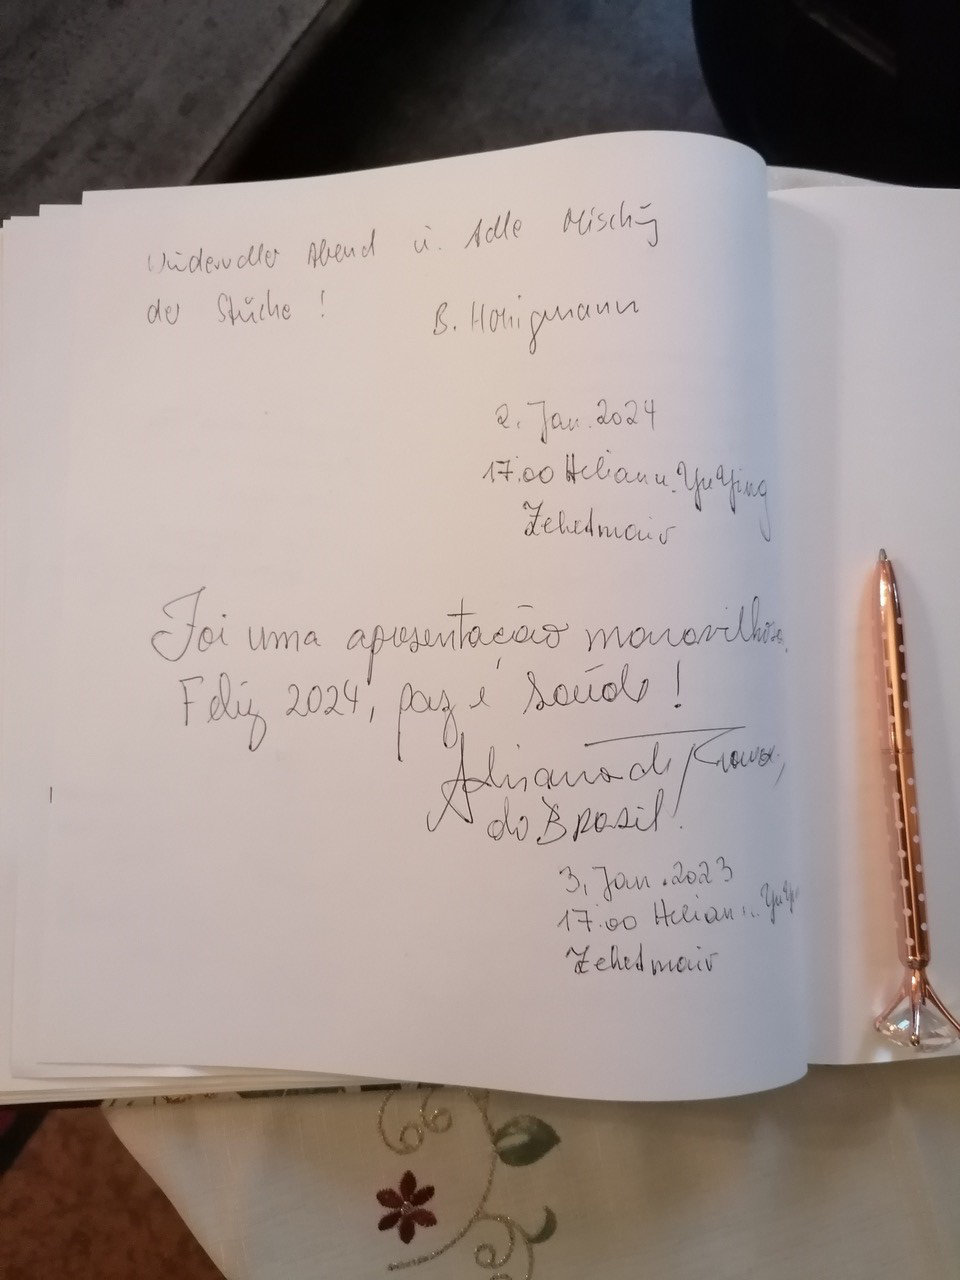 Wundervoller Abend u. tolle Mischg
der Stücke!
B. Honigmann
2. Jan. 2024
17.00 Helian u. YuYing
Zehetmair
Foi uma apresentação maravilhosa.
Feliz 2024, paz e Saúde!
Adriana de
do Brasil!
3. Jan. 2023
17.00 Helian u. YuYi
Zehetmair